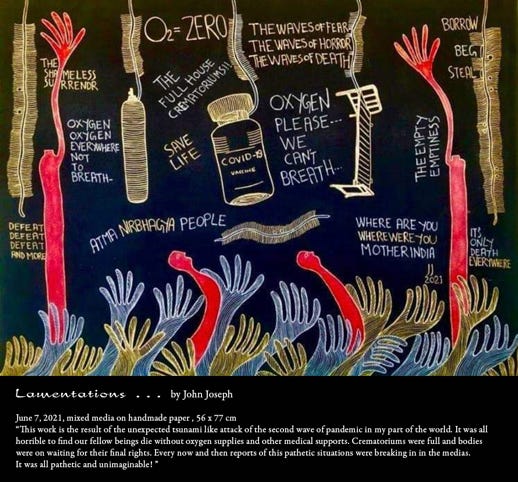 O₂=ZERO
THE WAVES OF FEAR
THE WAVES OF HORROR
THE WAVES OF DEATH
BORROW
BEG
STEAL
THE
SHAMELESS
SURRENDR
THE
FULL HOUSE
CREMATORIUMS!!
OXYGEN
OXYGEN
EVERYWHERE
NOT
TO
BREATH..
SAVE
LIFE
COVID-19
VACCINE
OXYGEN
PLEASE...
WE
CAN'T
BREATH...
THE EMPTY
EMPTINESS
DEFEAT
DEFEAT
DEFEAT
AND MORE
ATMA NIRBHAGYA PEOPLE
WHERE ARE YOU
WHERE WERE YOU
MOTHER INDIA
JJ
2021
ITS
ONLY
DEATH
EVERYWHERE
Lamentations . . . by John Joseph
June 7, 2021, mixed media on handmade paper , 56 x 77 cm
"This work is the result of the unexpected tsunami like attack of the second wave of pandemic in my part of the world. It was all
horrible to find our fellow beings die without oxygen supplies and other medical supports. Crematoriums were full and bodies
were on waiting for their final rights. Every now and then reports of this pathetic situations were breaking in in the medias.
It was all pathetic and unimaginable! "